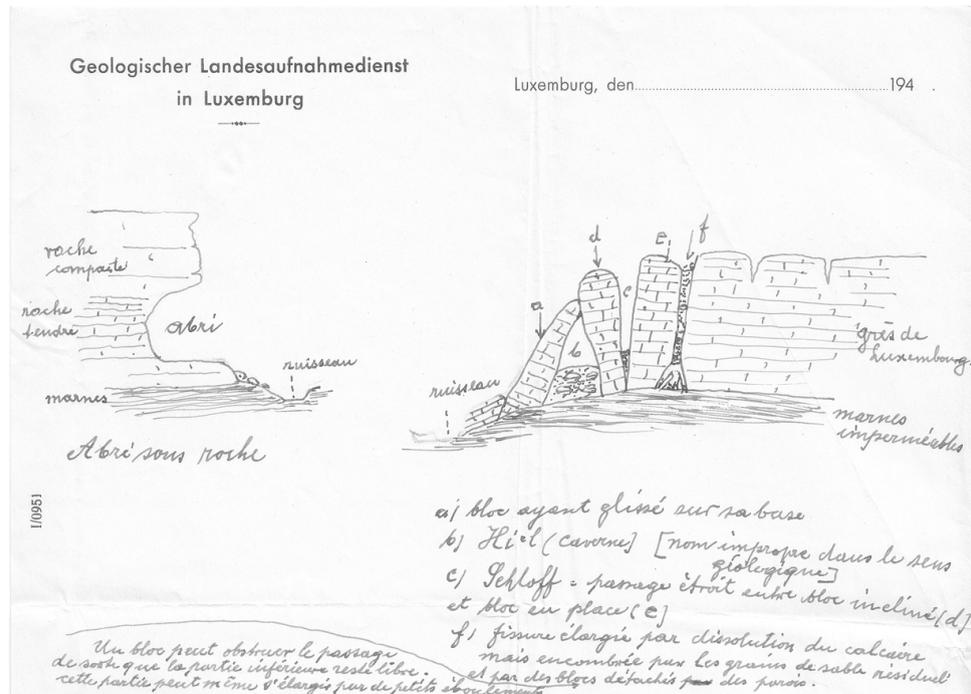 Geologischer Landesaufnahmedienst
in Luxemburg
Luxemburg, den 194 .
roche
compacte
roche
tendre
abri
ruisseau
marnes
Abri sous roche
d
e
f
a
c
b
ruisseau
grès de
Luxembourg
marnes
imperméables
I/0951
a) bloc ayant glissé sur sa base
b) Hiel (caverne) [nom impropre dans le sens
géologique]
c) Schloff = passage étroit entre bloc incliné (d)
et bloc en place (e)
f) fissure élargie par dissolution du calcaire
mais encombrée par les grains de sable résiduel
et par des blocs détachés des parois.
Un bloc peut obstruer le passage
de sorte que la partie inférieure reste libre.
cette partie peut même s'élargir par de petits éboulements